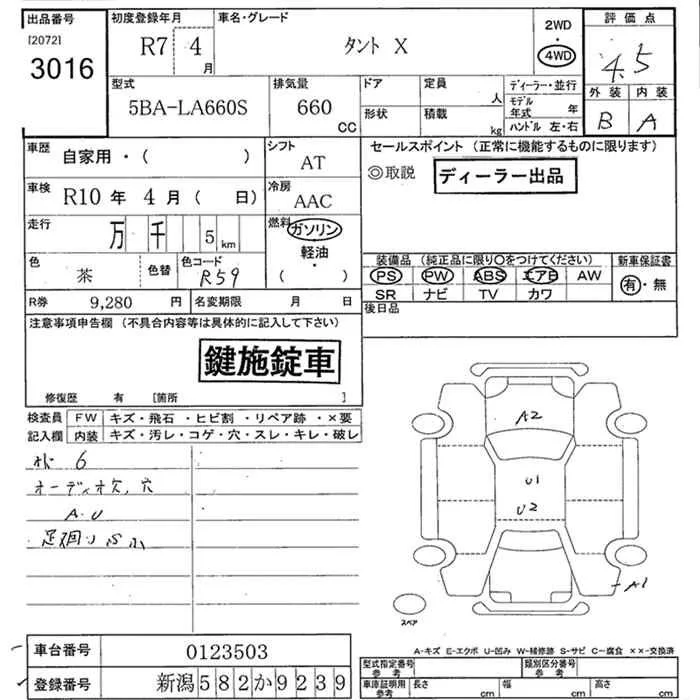 出品番号 初度登録年月 車名・グレード 2WD 評価点
[2072] R7 4月 タント X 4WD 4.5
3016
型式 排気量 ドア 定員 人 ディーラー・並行 外装 内装
5BA-LA660S 660 CC 形状 積載 kg モデル年式 年 B A
ハンドル 左・右
車歴 自家用・( ) シフト AT セールスポイント (正常に機能するものに限ります)
◎取説 ディーラー出品
車検 R10年 4月( 日) 冷房 AAC
走行 万 千 5 km 燃料 ガソリン
軽油
・
( )
色 茶 色替 色コード R59
装備品 (純正品に限り○をつけてください) 新車保証書
PS PW ABS エアB AW 有・無
SR ナビ TV カワ
R券 9,280 円 名変期限 月 日 後日品
注意事項申告欄 (不具合内容等は具体的に記入して下さい)
鍵施錠車
修復歴 有 [箇所 ]
検査員 FW キズ・飛石・ヒビ割・リペア跡・×要
記入欄 内装 キズ・汚レ・コゲ・穴・スレ・キレ・破レ
6
オーディオ欠,穴
A.U
足廻り
A2
U1
U2
A1
スペア
A-キズ E-エクボ U-凹み W-補修跡 S-サビ C-腐食 ××-交換済
車台番号 0123503
登録番号 新潟582か9239
型式指定番号 参考 類別区分番号 参考
車庫証明用 参考 長さ cm 幅 cm 高さ cm